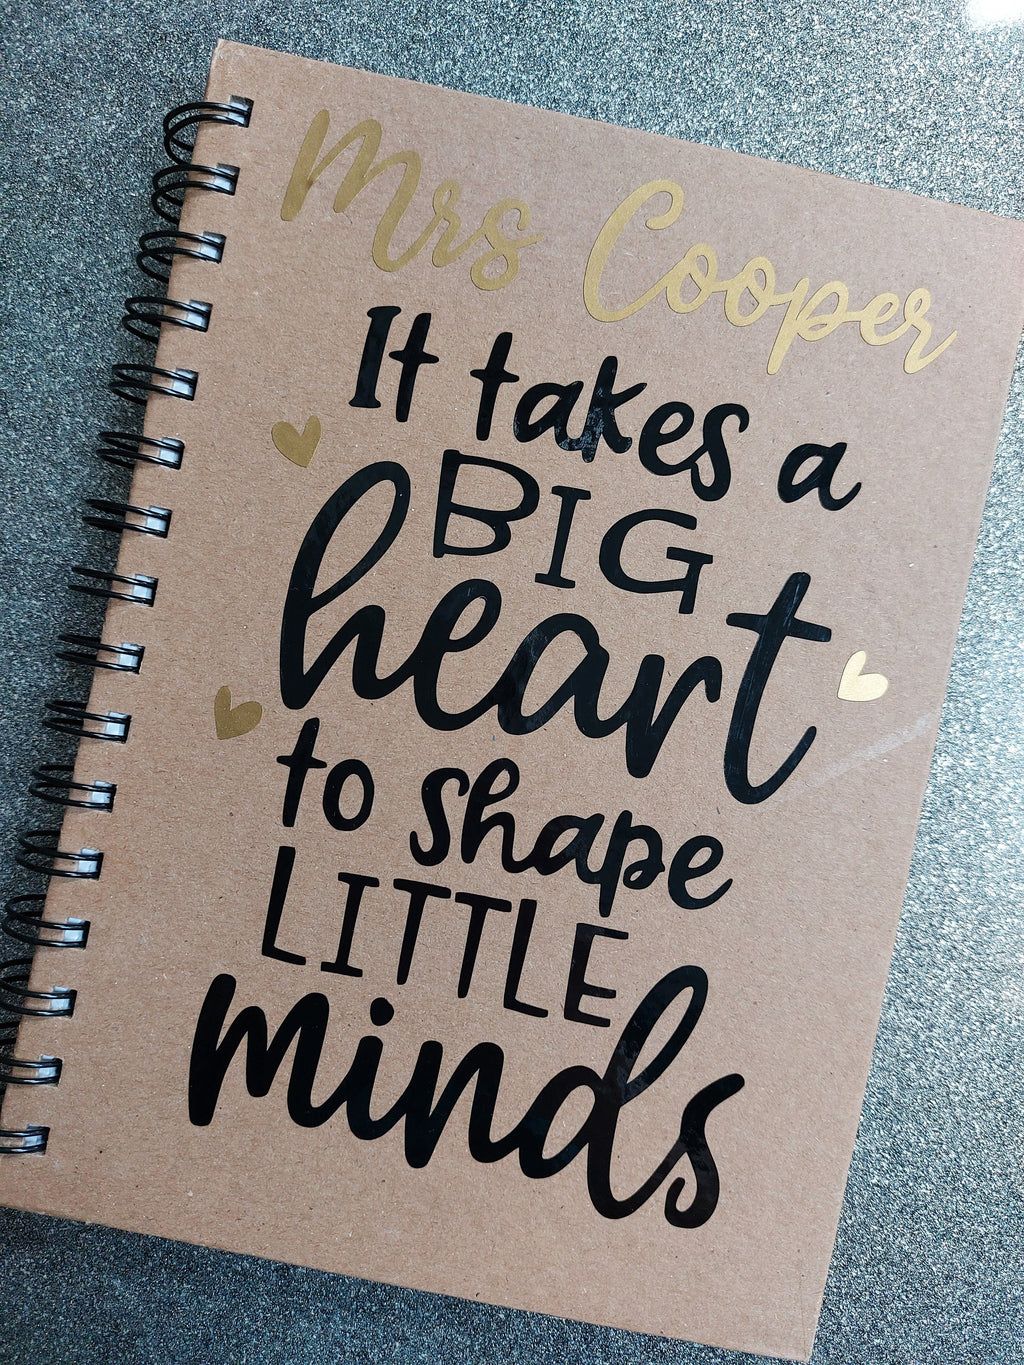 Mrs Cooper
It takes a
BIG
heart
to shape
LITTLE
minds